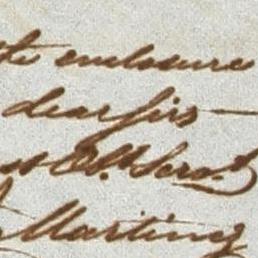 the enclosure
dear Sirs —
st Obt. Servt.
Martiny